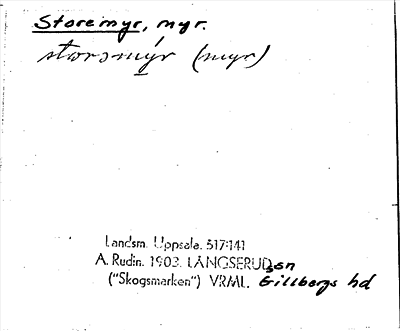 Storemyr, myr.
storəmýr (myr)
Landsm. Uppsala. 517:141
A. Rudin. 1903. LÅNGSERUD sn
("Skogsmarken") VRML. Gillbergs hd